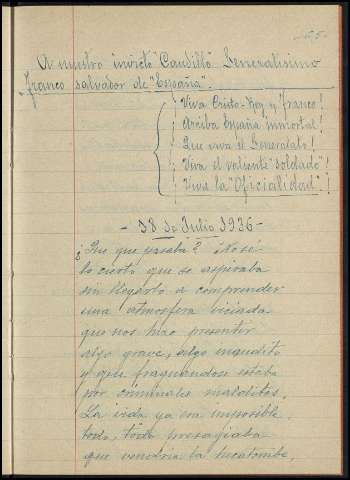 55
A nuestro invicto "Caudillo" Generalisimo
Franco salvador de "España".
¡Viva Cristo-Rey y Franco!
¡Arriba España inmortal!
¡Que viva el Generalato!
¡Viva el valiente "soldado"!
¡Viva la "Oficialidad"!
- 18 de Julio 1936 -
¿Que que pasaba? No sé
lo cierto que se aspiraba
sin llegarlo a comprender
una atmosfera viciada
que nos hizo presentir
algo grave, algo inaudito
y que fraguandose estaba
por criminales malditos.
La vida ya era imposible,
todo, todo presagiaba
que vendria la hecatombe,